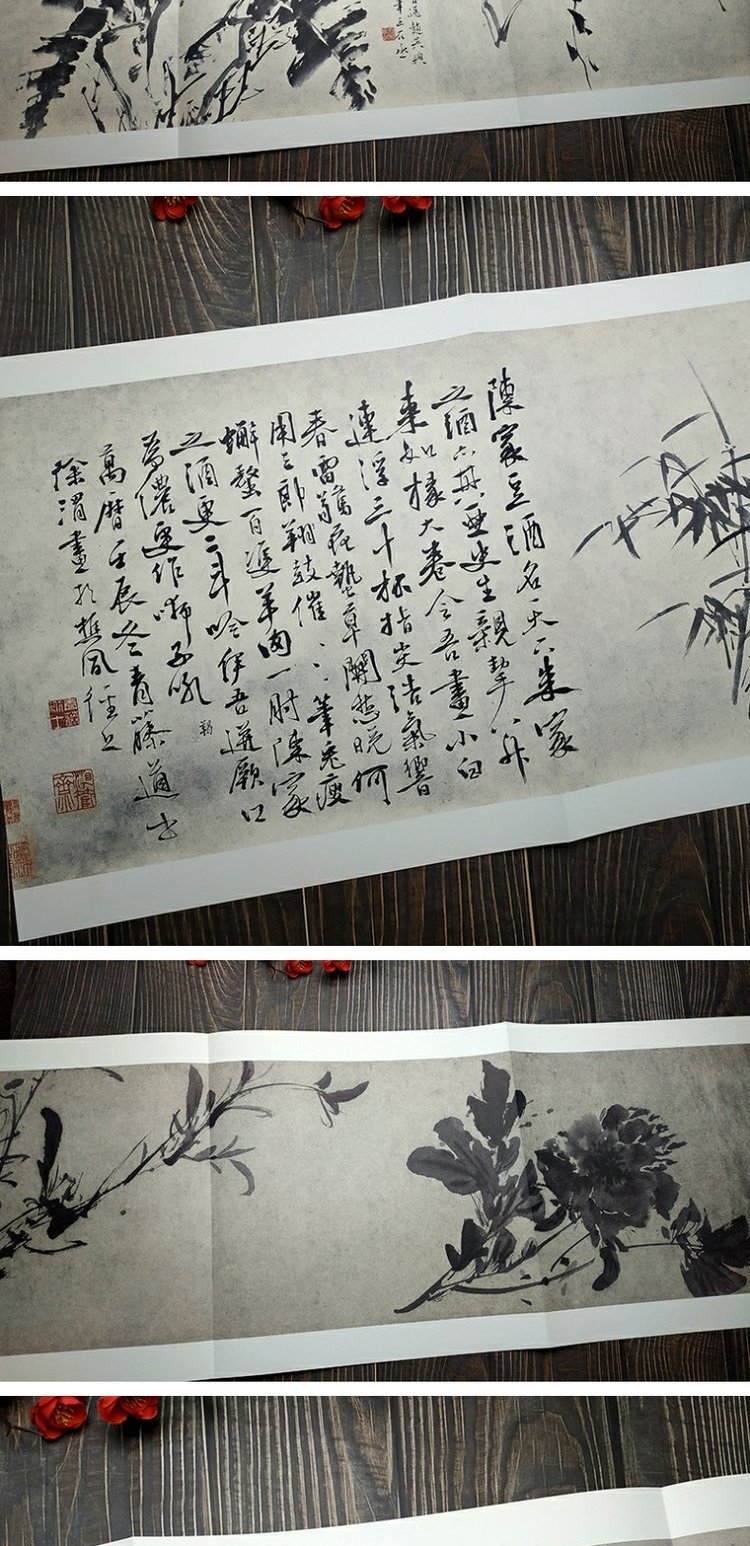 陳家豆酒名天下朱家
之酒亦其亞史甥親挈八升
來如椽大卷令吾畫小白
連浮三十杯指尖浩氣響
春雷驚花蟄草開愁晚何
用三郎羯鼓催〻筆兔瘦
蠏螯百雙羊肉一肘陳家
之酒更二斗吟伊吾迸厥口
為儂更作獅子吼
萬曆壬辰冬青藤道士
徐渭畫於樵風徑上